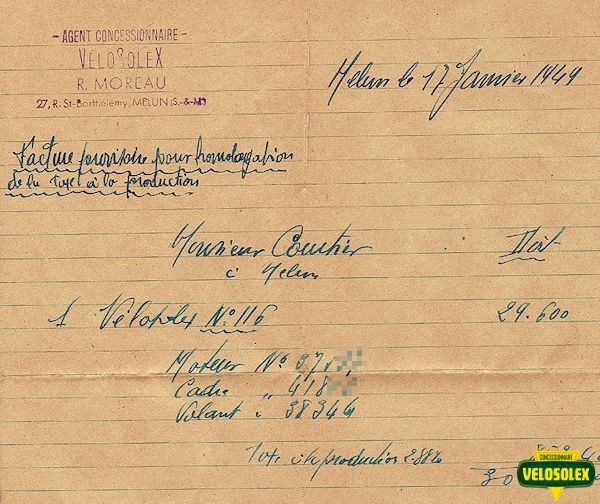 - AGENT CONCESSIONNAIRE -
VÉLOSOLEX
R. MOREAU
27, R. St-Barthélemy, MELUN (S.-&-M)
Melun le 17 Janvier 1949
Facture provisoire pour homologation
de la taxe à la production
Monsieur Doit
à Melun
1 Vélosolex N° 116 29.600
Moteur N° 37
Cadre " 418
Volant " 38344
Taxe à la production
CONCESSIONNAIRE
VELOSOLEX